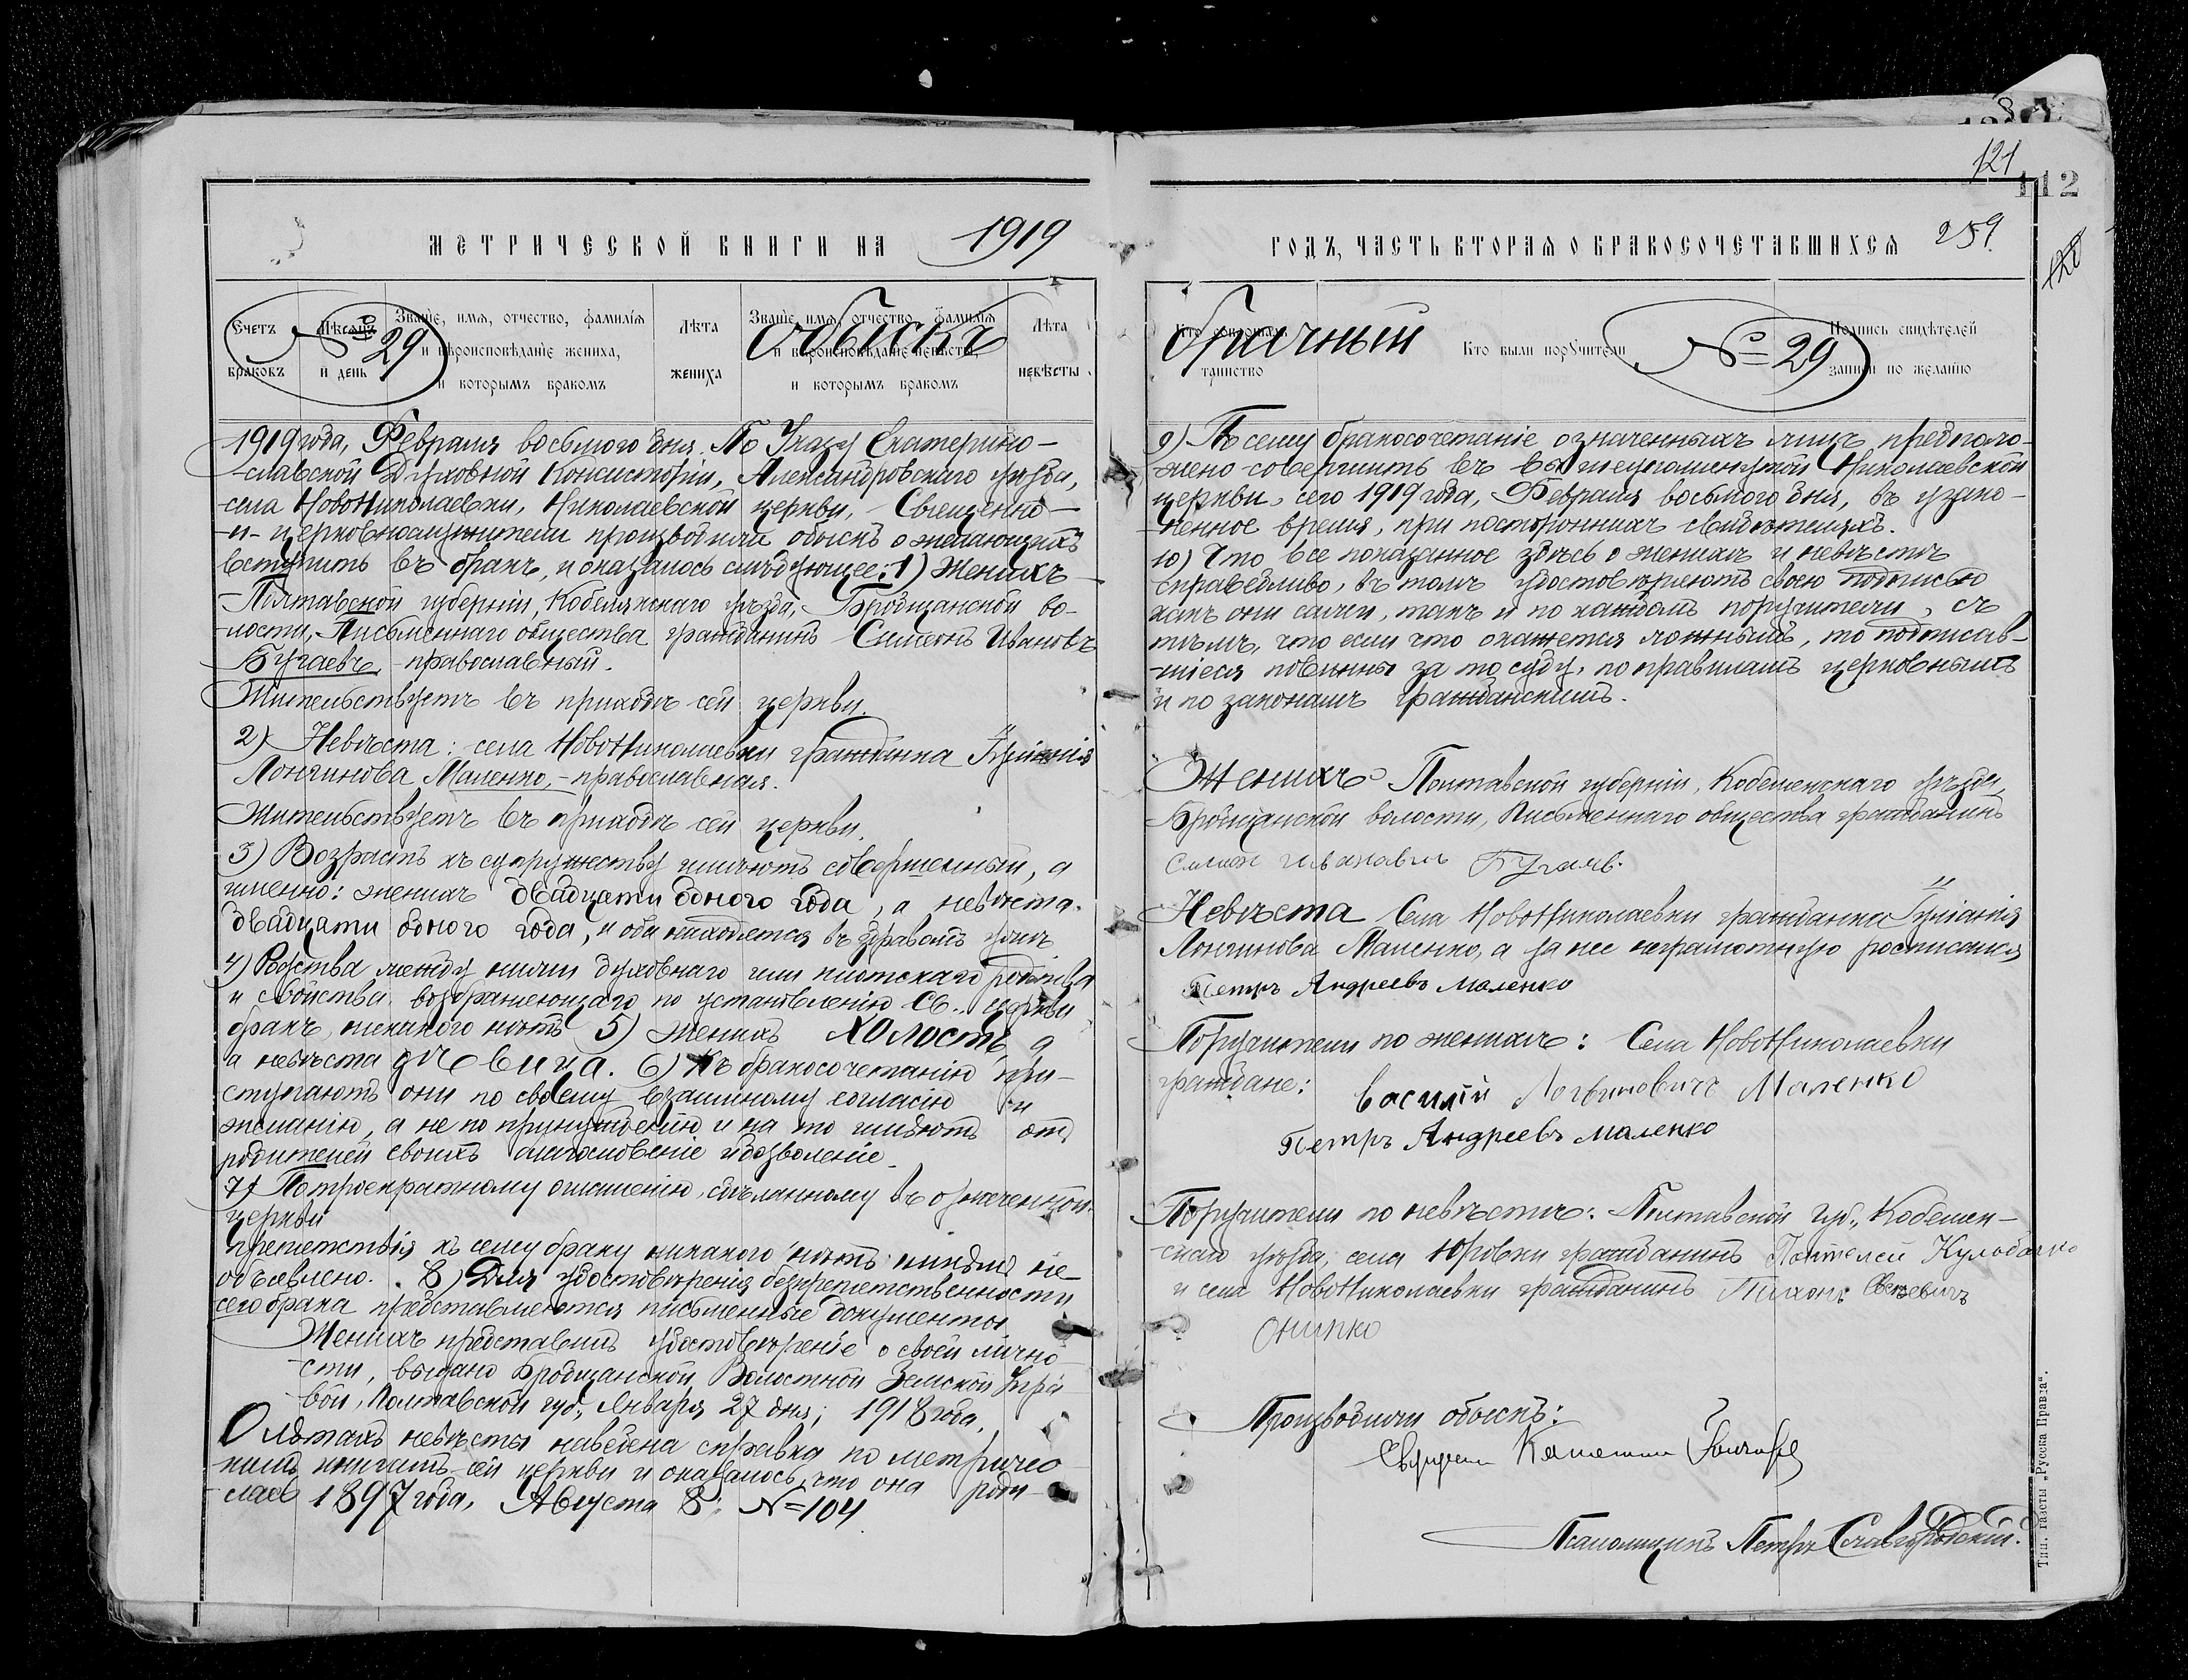 121
112
МЕТРИЧЕСКОЙ КНИГИ НА 1919
Счетъ браковъ
Мѣсяцъ и день
Званіе, имя, отчество, фамилія и вѣроисповѣданіе жениха, и которымъ бракомъ
Лѣта жениха
Званіе, имя, отчество, фамилія и вѣроисповѣданіе невѣсты, и которымъ бракомъ
Лѣта невѣсты
№ 29
Обыскъ
1919 года, Февраля восьмого дня. По Указу Екатерино-
-славской Духовной Консисторіи, Александровскаго уѣзда,
села НовоНиколаевки, Николаевской церкви, Священно-
-и-церковнослужители производили обыскъ о желающихъ
вступить въ бракъ, и оказалось слѣдующее: 1) Женихъ
Полтавской губерніи, Кобелякскаго уѣзда, Бродщанской во-
лости, Письменнаго общества гражданинъ Симеонъ Ивановъ
Бугаевъ, -православный.
Жительствуетъ въ приходѣ сей церкви.
2) Невѣста: села НовоНиколаевки гражданка
Лонгинова Маленко, -православная.
Жительствуетъ въ приходѣ сей церкви.
3) Возрастъ къ супружеству имѣютъ совершенный, а
именно: женихъ двадцати одного года, а невѣста
двадцати одного года, и оба находятся въ здравомъ умѣ
4) Родства между ними духовнаго или плотскаго родства
и свойства, возбраняющаго по установленію Св. церкви
бракъ, никакого нѣтъ 5) Женихъ холостъ,
а невѣста дѣвица. 6) Къ бракосочетанію при-
ступаютъ они по своему взаимному согласію и
желанію, а не по принужденію и на то имѣютъ отъ
родителей своихъ благословеніе и дозволеніе
7) По троекратному оглашенію, сдѣланному въ означенной
церкви
препятствія къ сему браку никакого нѣтъ никѣмъ не
объявлено. 8) Для удостовѣренія безпрепятственности
сего брака представляются письменные документы
Женихъ представилъ удостовѣреніе о своей лично-
сти, выдано Бродщанской Волостной Земской Упра-
вой, Полтавской губ., Января 27 дня, 1918 года.
О лѣтахъ невѣсты наведена справка по метричес-
кимъ книгамъ сей церкви и оказалось, что она роди-
лась 1897 года, Августа 8, № 104
ГОДЪ, ЧАСТЬ ВТОРАЯ О БРАКОСОЧЕТАВШИХСЯ 259
Кто совершалъ таинство
Кто были поручители
Подпись свидѣтелей записи по желанію
брачный
№ 29
9) По сему бракосочетаніе означенныхъ лицъ предполо-
-жено совершить въ вышеупомянутой Николаевской
церкви, сего 1919 года, Февраля восьмого дня, въ узако-
-ненное время, при постороннихъ свидѣтеляхъ.
10) Что все показанное здѣсь о женихѣ и невѣстѣ
справедливо, въ томъ удостовѣряютъ своею подписью
какъ они сами, такъ и по каждомъ поручители, съ
тѣмъ, что если что окажется ложнымъ, то подписав-
-шіеся повинны за то суду, по правиламъ церковнымъ
и по законамъ гражданскимъ.
Женихъ Полтавской губерніи, Кобелякскаго уѣзда,
Бродщанской волости, Письменнаго общества гражданинъ
Симеон Иванович Бугаев.
Невѣста Села НовоНиколаевки гражданка
Лонгинова Маленко, а за нее неграмотную росписался
Петръ Андреевъ Маленко
Поручители по женихѣ: Села НовоНиколаевки
граждане: Василій Логвиновичъ Маленко
Петръ Андреевъ Маленко
Поручители по невѣстѣ: Полтавской губ., Кобеляк-
скаго уѣзда, села Юровки гражданинъ Пантелей
и села НовоНиколаевки гражданинъ Тихонъ
Онипко
Производили обыскъ:
Псаломщикъ Петръ
Тип. газеты „Русска Правда“.